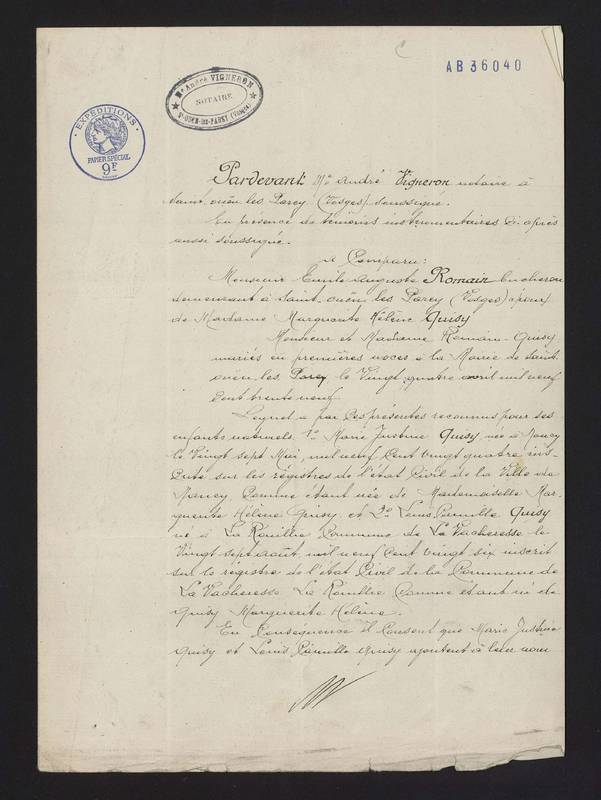 AB 36040
Me André VIGNERON
NOTAIRE
St-OUEN-lès-PAREY (Vosges)
EXPÉDITIONS
PAPIER SPÉCIAL
9F
Pardevant Me André Vigneron notaire à
Saint-ouën les Parey (Vosges) soussigné.
En présence de témoins instrumentaires ci-après
aussi soussignés.
A Comparu:
Monsieur Emile Auguste Romain bucheron
demeurant à Saint-ouën les Parey (Vosges) époux
de Madame Marguerite Hélène Quisy
Monsieur et Madame Romain-Quisy
mariés en premières noces à la Mairie de Saint-
ouën-les Parey le Vingt quatre avril mil neuf
Cent trente neuf.
Lequel a par ces présentes reconnu pour ses
enfants naturels 1o Marie Justine Quisy née à Nancy
le Vingt sept Mai, mil neuf Cent vingt quatre ins-
crite sur les régistres de l'état Civil de la Ville de
Nancy Comme étant née de Mademoiselle Mar-
guerite Hélène Quisy et 2o Louis Camille Quisy
né à La Rouillie Commune de La Vacheresse le
Vingt sept août mil neuf Cent vingt six inscrit
sur le régistre de l'état Civil de la Commune de
La Vacheresse La Rouillie Comme étant né de
Quisy Marguerite Hélène.
En Conséquence il consent que Marie Justine
Quisy et Louis Camille Quisy ajoutent à leur nom